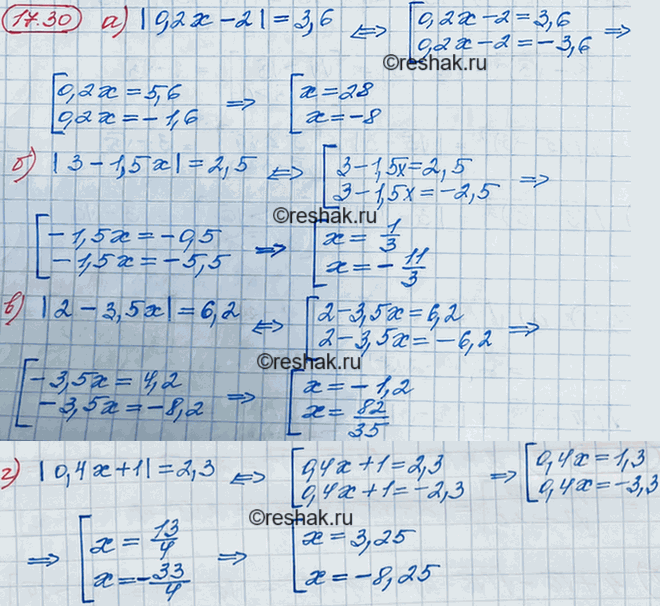 17.30 а) |0,2x − 2| = 3,6 ⇔ [0,2x − 2 = 3,6
0,2x − 2 = −3,6 ⇒
©reshak.ru
[0,2x = 5,6
0,2x = −1,6 ⇒ [x = 28
x = −8
б) |3 − 1,5x| = 2,5 ⇔ [3 − 1,5x = 2,5
3 − 1,5x = −2,5 ⇒
©reshak.ru
[−1,5x = −0,5
−1,5x = −5,5 ⇒ [x = 1/3
x = −11/3
в) |2 − 3,5x| = 6,2 ⇔ [2 − 3,5x = 6,2
2 − 3,5x = −6,2 ⇒
©reshak.ru
[−3,5x = 4,2
−3,5x = −8,2 ⇒ [x = −1,2
x = 82/35
г) |0,4x + 1| = 2,3 ⇔ [0,4x + 1 = 2,3
0,4x + 1 = −2,3 ⇒ [0,4x = 1,3
0,4x = −3,3
©reshak.ru
⇒ [x = 13/4
x = −33/4 ⇒ [x = 3,25
x = −8,25